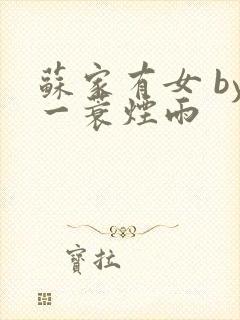 蘇家有女 by
一蓑煙雨
寶拉